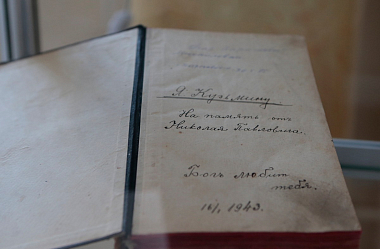 Я Кузьмину
На память отъ
Николая Павловича.
Богъ любит
тебя.
16/I 1943.